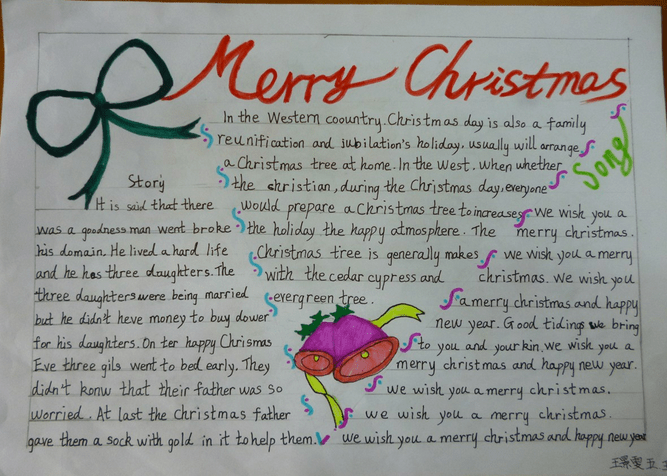 Merry Christmas
In the Western coountry. Christmas day is also a family
reunification and jubilation's holiday, usually will arrange
a Christmas tree at home. In the West. When whether
the christian, during the Christmas day, everyone
would prepare a Christmas tree to increases
the holiday the happy atmosphere. The
Christmas tree is generally makes
with the cedar cypress and
evergreen tree.
Story
It is said that there
was a goodness man went broke
his domain. He lived a hard life
and he has three daughters. The
three daughters were being married
but he didn't heve money to buy dower
for his daughters. On ter happy Chrismas
Eve three gils went to bed early. They
didn't konw that their father was so
worried. At last the Christmas father
gave them a sock with gold in it to help them.
Song
We wish you a
merry christmas.
we wish you a merry
christmas. We wish you
a merry christmas and happy
new year. Good tidings we bring
to you and your kin. we wish you a
merry christmas and happy new year.
we wish you a merry christmas.
we wish you a merry christmas.
we wish you a merry christmas and happy new year